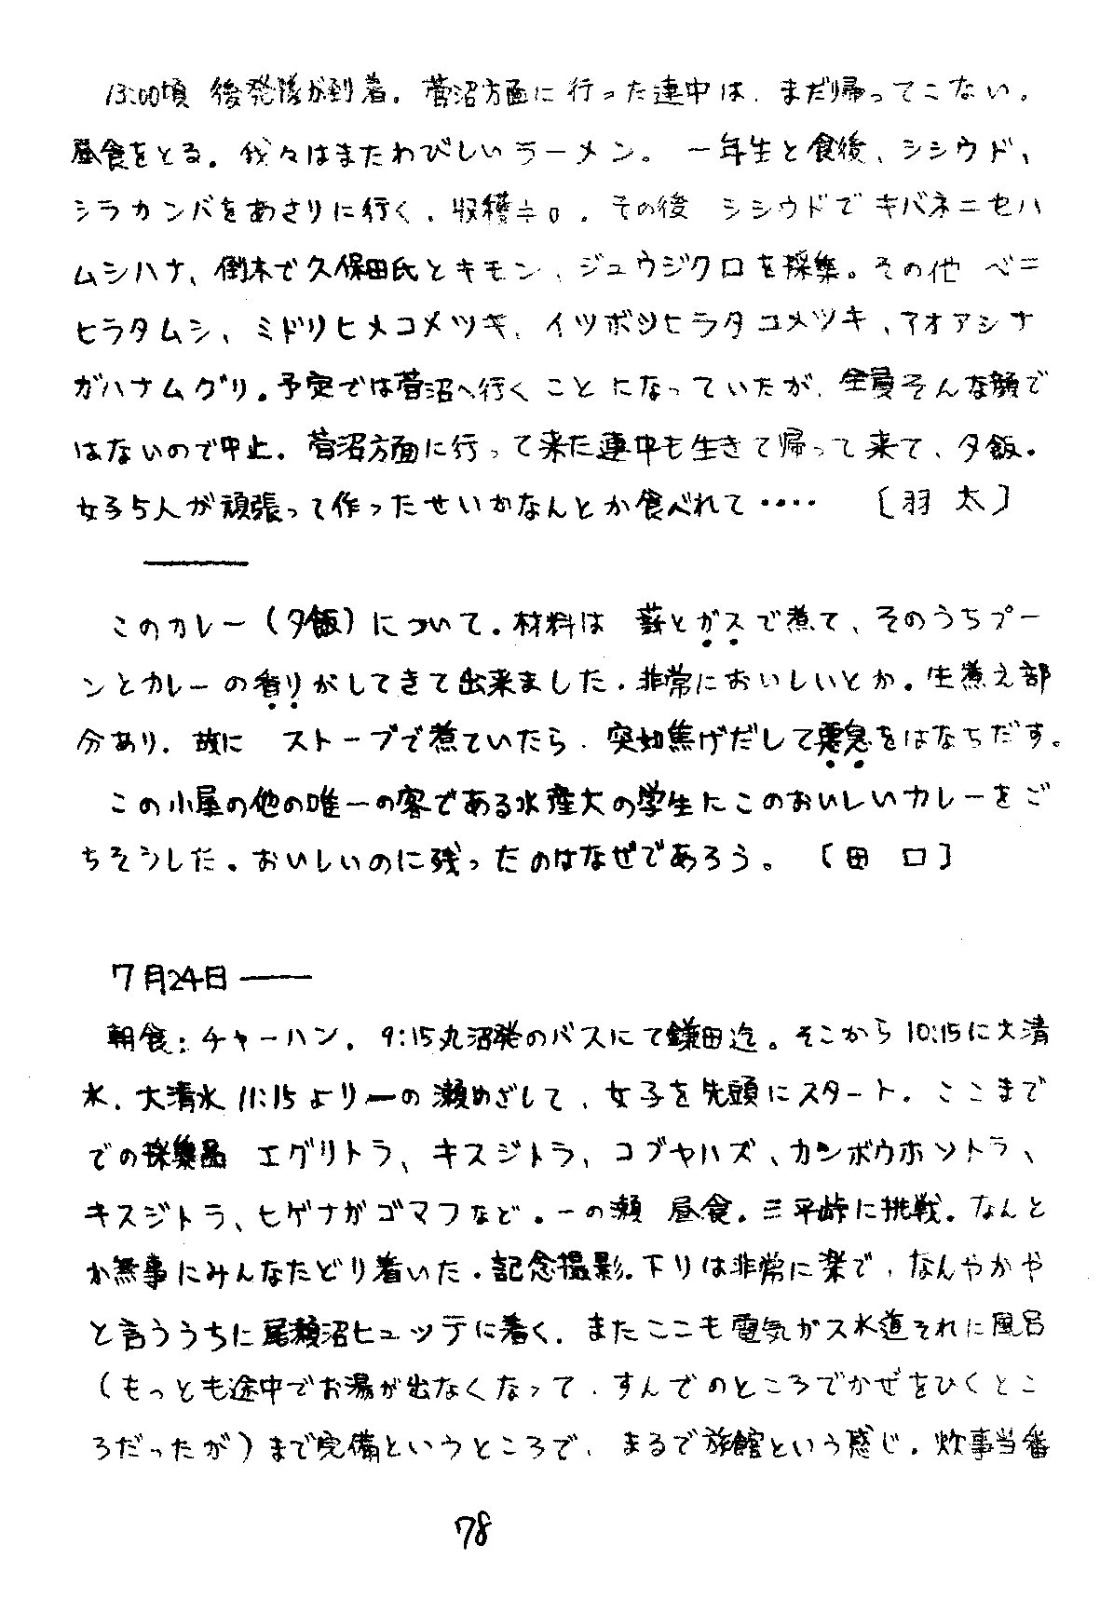 13:00頃 後発隊が到着。菅沼方面に行った連中は、まだ帰ってこない。
昼食をとる。我々はまたわびしいラーメン。一年生と食後、シシウド、
シラカンバをあさりに行く。収穫≒0。その後 シシウドでキバネニセハ
ムシハナ、倒木で久保田氏とキモン、ジュウジクロを採集。その他 ベニ
ヒラタムシ、ミドリヒメコメツキ、イツボシヒラタコメツキ、アオアシナ
ガハナムグリ。予定では菅沼へ行くことになっていたが、全員そんな顔で
はないので中止。菅沼方面に行って来た連中も生きて帰って来て、夕飯。
女子5人が頑張って作ったせいかなんとか食べれて‥‥ 〔羽 太〕
このカレー(夕飯)について。材料は 薪とガスで煮て、そのうちプー
ンとカレーの香りがしてきて出来ました。非常においしいとか。生煮え部
分あり。故に ストーブで煮ていたら、突如焦げだして悪臭をはなちだす。
この小屋の他の唯一の客である水産大の学生にこのおいしいカレーをご
ちそうした。おいしいのに残ったのはなぜであろう。〔田 口〕
7月24日――
朝食:チャーハン。9:15丸沼発のバスにて鎌田迄。そこから10:15に大清
水。大清水11:15より一の瀬めざして、女子を先頭にスタート。ここまで
での採集品 エグリトラ、キスジトラ、コブヤハズ、カンボウホソトラ、
キスジトラ、ヒゲナガゴマフなど。一の瀬 昼食。三平峠に挑戦。なんと
か無事にみんなたどり着いた。記念撮影。下りは非常に楽で、なんやかや
と言ううちに尾瀬沼ヒュッテに着く。またここも電気ガス水道それに風呂
(もっとも途中でお湯が出なくなって、すんでのところでかぜをひくとこ
ろだったが)まで完備というところで、まるで旅館という感じ。炊事当番
78